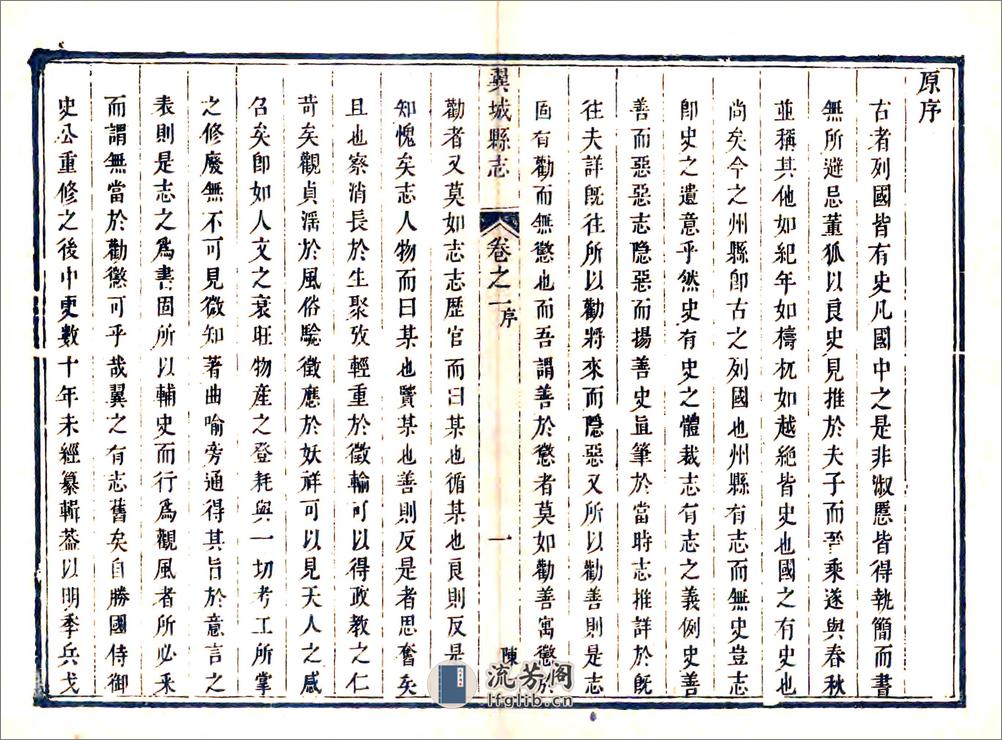 原序
古者列國皆有史凡國中之是非淑慝皆得執簡而書
無所避忌董狐以良史見推於夫子而晉乘遂與春秋
並稱其他如紀年如檮杌如越絶皆史也國之有史也
尚矣今之州縣卽古之列國也州縣有志而無史豈志
卽史之遺意乎然史有史之體裁志有志之義例史善
善而惡惡志隐惡而揚善史直筆於當時志推詳於旣
往夫詳旣往所以勸將來而隱惡又所以勸善則是志
固有勸而無懲也而吾謂善於懲者莫如勸善寓懲於
翼城縣志
卷之一序
一
陳
勸者又莫如志志歴官而曰某也循某也良則反是
知愧矣志人物而曰某也賢某也善則反是者思奮矣
且也察消長於生聚攷輕重於徵輸可以得政教之仁
苛矣觀貞滛於風俗驗徵應於妖祥可以見天人之感
召矣卽如人文之衰旺物産之登耗與一切考工所掌
之修廢無不可見微知著曲喻旁通得其旨於意言之
表則是志之爲書固所以輔史而行爲觀風者所必采
而謂無當於勸懲可乎哉翼之有志舊矣自勝國侍御
史公重修之後中更數十年未經纂輯葢以明季兵戈
流芳阁
lfglib.cn